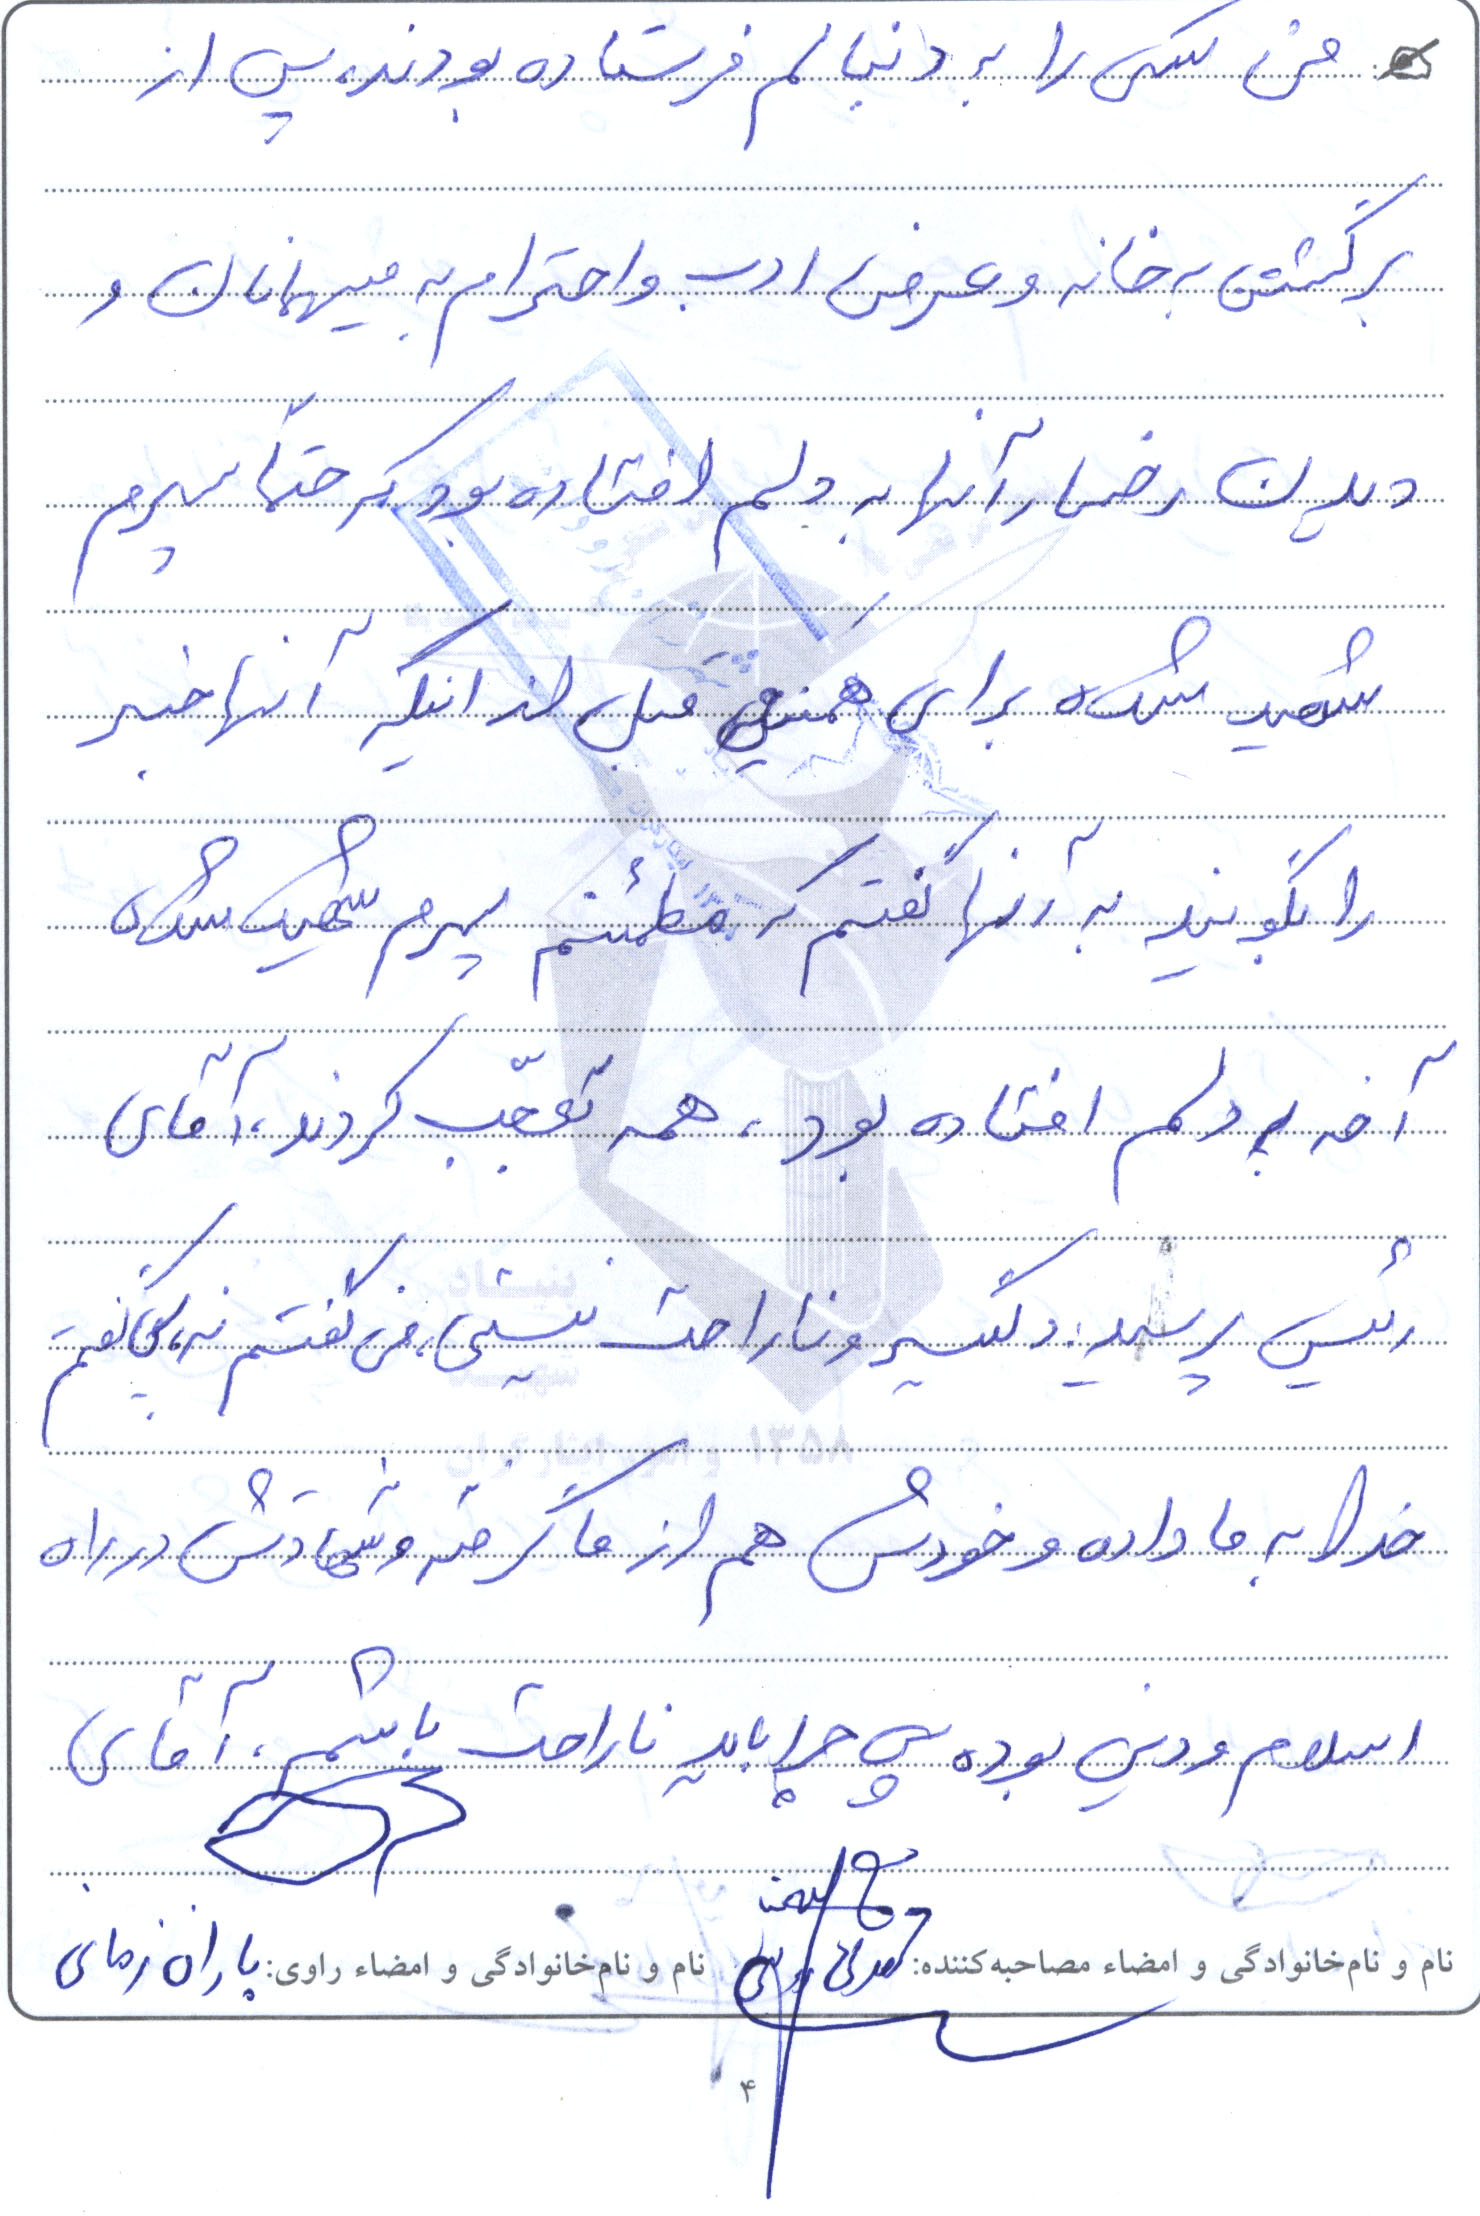 من کسی را به دنبالم فرستاده بودند، پس از
برگشتن به خانه و عرض ادب و احترام به میهمانان و
دیدن رخسار آنها به دلم افتاده بود که حتماً پسرم
شهید شده برای همین قبل از اینکه آنها خبر
را بگویند به آنها گفتم که مطمئنم پسرم شهید شده
آخه به دلم افتاده بود، همه تعجّب کردند، آقای
رئیس پرسید: دلگیر و ناراحت نیستی، من گفتم نه،
خدا به ما داده و خودش هم از ما گرفته و شهادتش در راه
اسلام و دین بوده پس چرا باید ناراحت باشم، آقای
نام و نام‌خانوادگی و امضاء مصاحبه‌کننده:
نام و نام‌خانوادگی و امضاء راوی: باران زمانی
۴